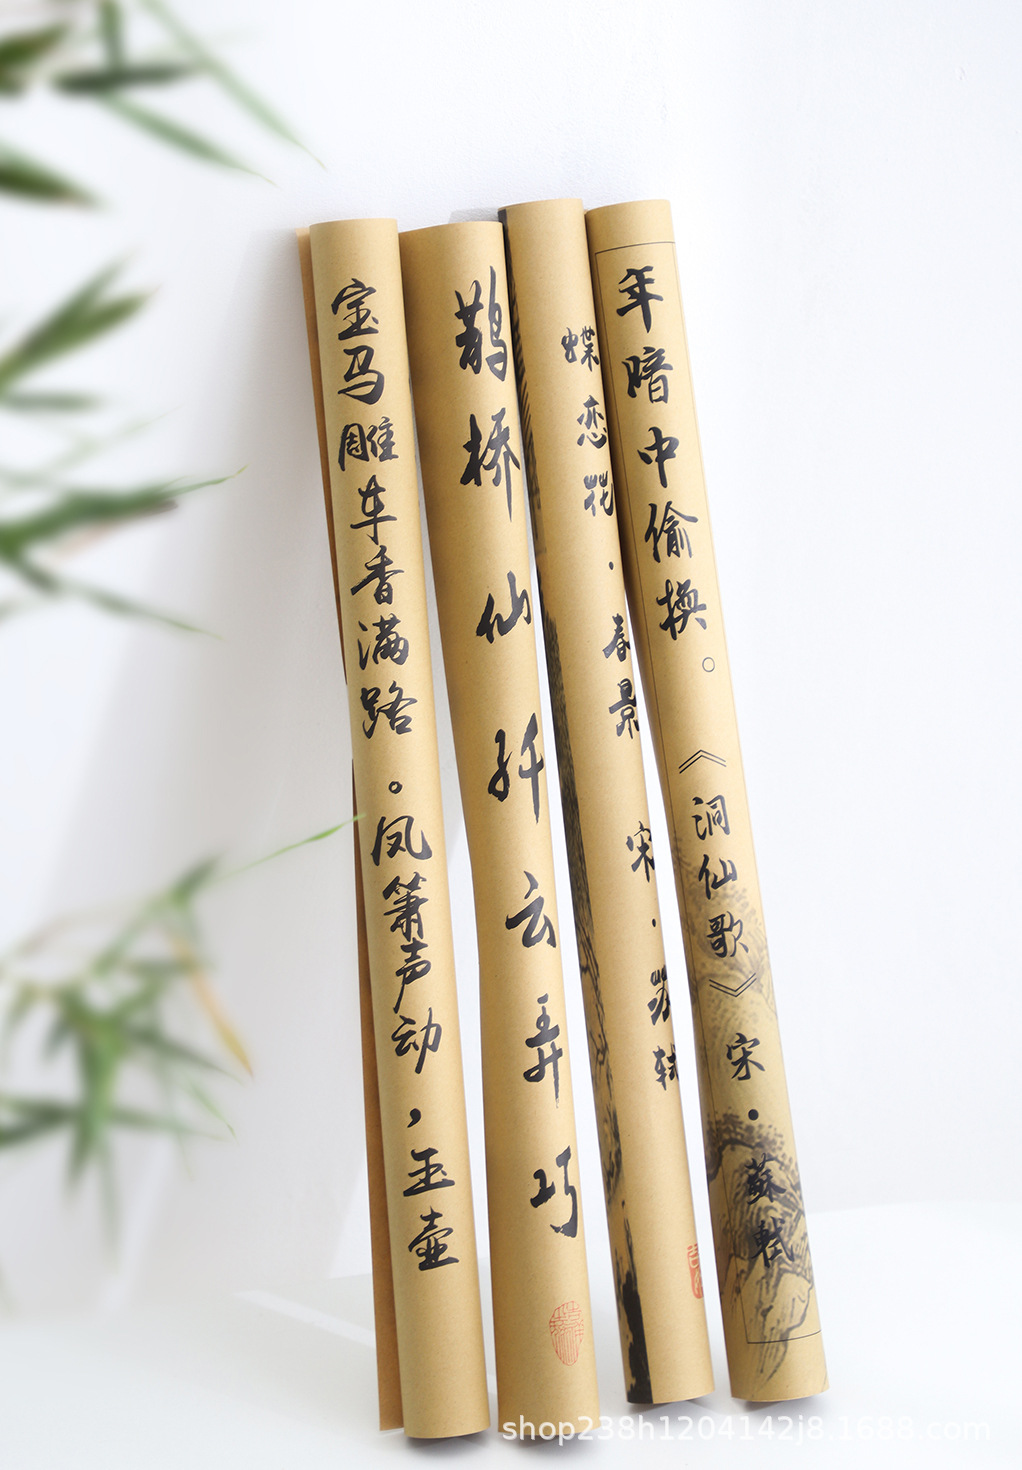 宝马雕车香满路。凤箫声动，玉壶
鹊桥仙 纤云弄巧
蝶恋花·春景 宋·苏轼
年暗中偷换。《洞仙歌》宋·蘇軾
shop238h1204142j8.1688.com